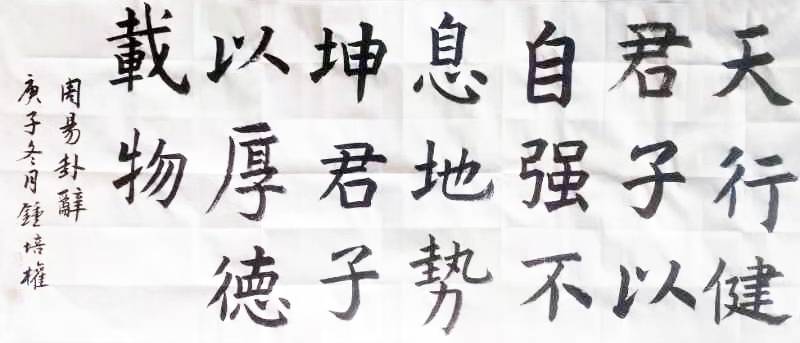 天行健
君子以
自强不
息地势
坤君子
以厚德
載物
周易卦辭
庚子冬月鍾培權